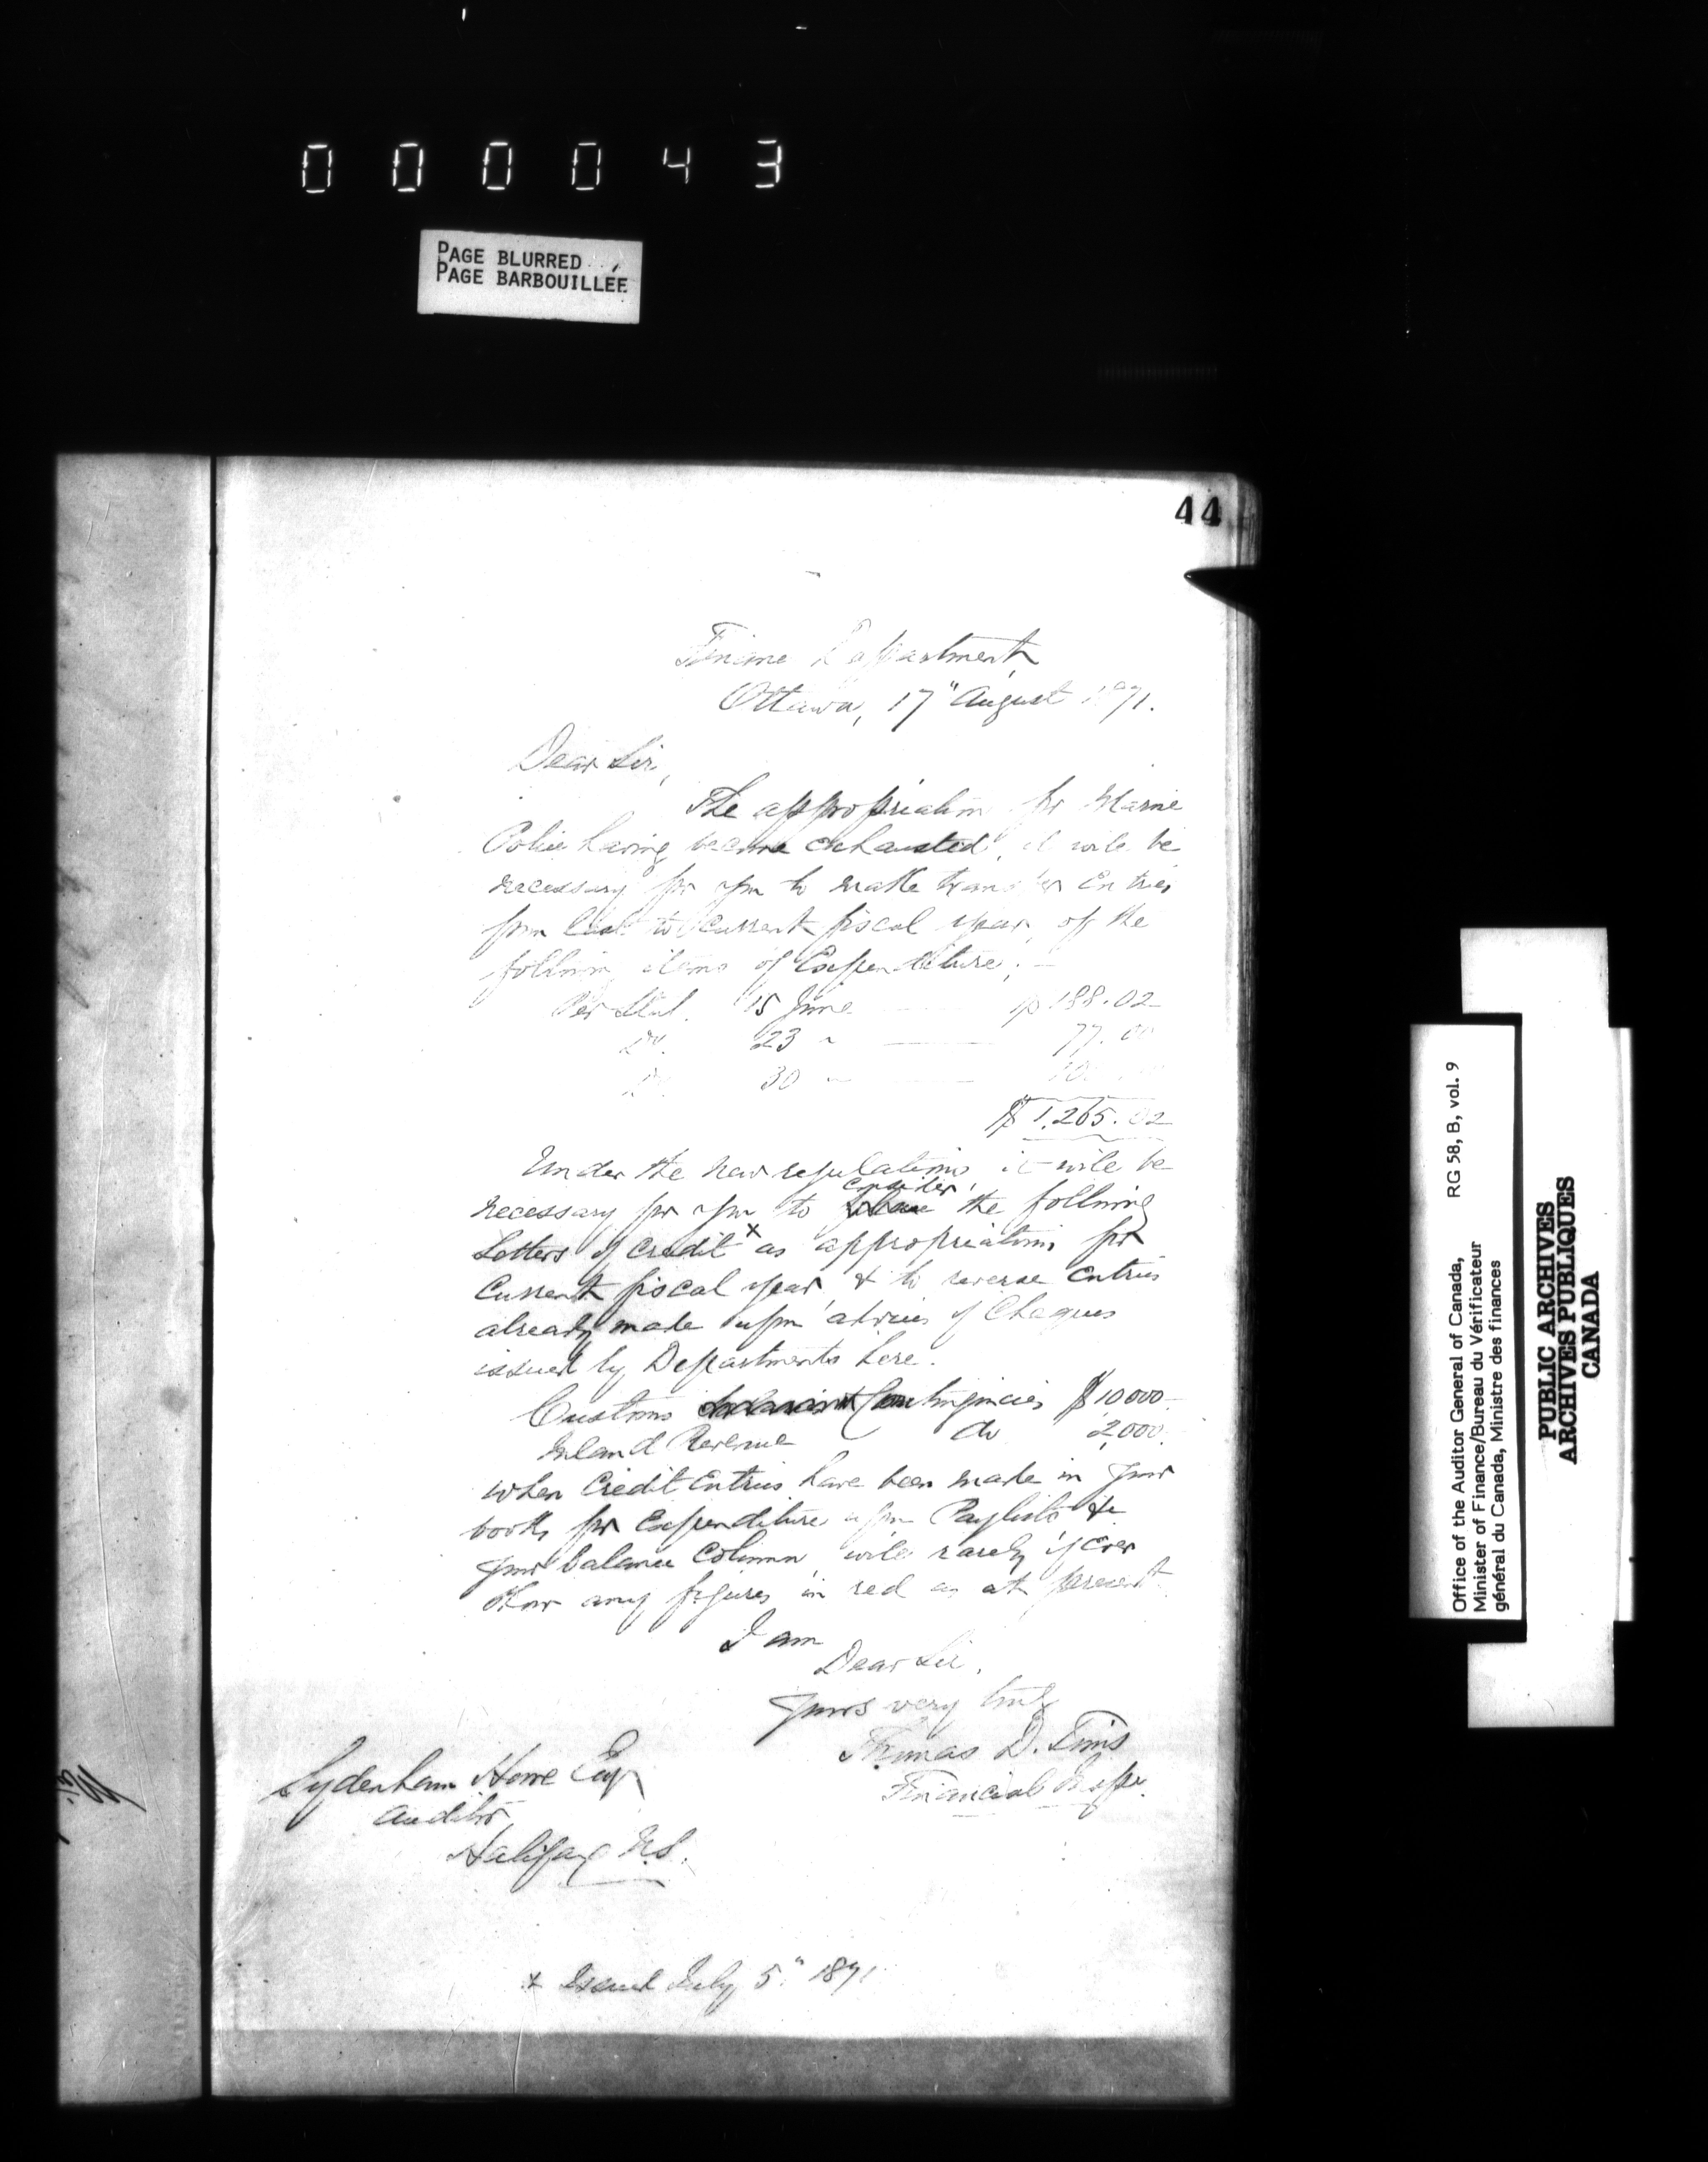 000043
PAGE BLURRED
PAGE BARBOUILLÉE
44
Finance Department
Ottawa, 17" August 1871.
Dear Sir,
The appropriation for Marine
Police having become exhausted, it will be
necessary for you to make transfer Entries
from last to Current fiscal year, of the
following items of Expenditure; —
Per Stat. 15 June $ 188.02
Do. 23 " 77.00
Do. 30 "
$ 1,265.02
Under the new regulations, it will be
consider
necessary for you to the following
Letters of Credit x as appropriations for
Current fiscal year, & to reverse Entries
already made upon advices of Cheques
issued by Departments here.
Customs Contingencies $10000.
Inland Revenue do 2,000.
When Credit Entries have been made in your
books for Expenditure upon Paylists &c
your balance column, will rarely if ever
show any figures in red as at present.
I am
Dear Sir,
Yours very truly
Thomas D. Tims
Financial Inspr.
Sydenham Howe Esqr
Auditor,
Halifax N.S.
x Issued July 5" 1871
Office of the Auditor General of Canada, RG 58, B, vol. 9
Minister of Finance/Bureau du Vérificateur
général du Canada, Ministre des finances
PUBLIC ARCHIVES
ARCHIVES PUBLIQUES
CANADA